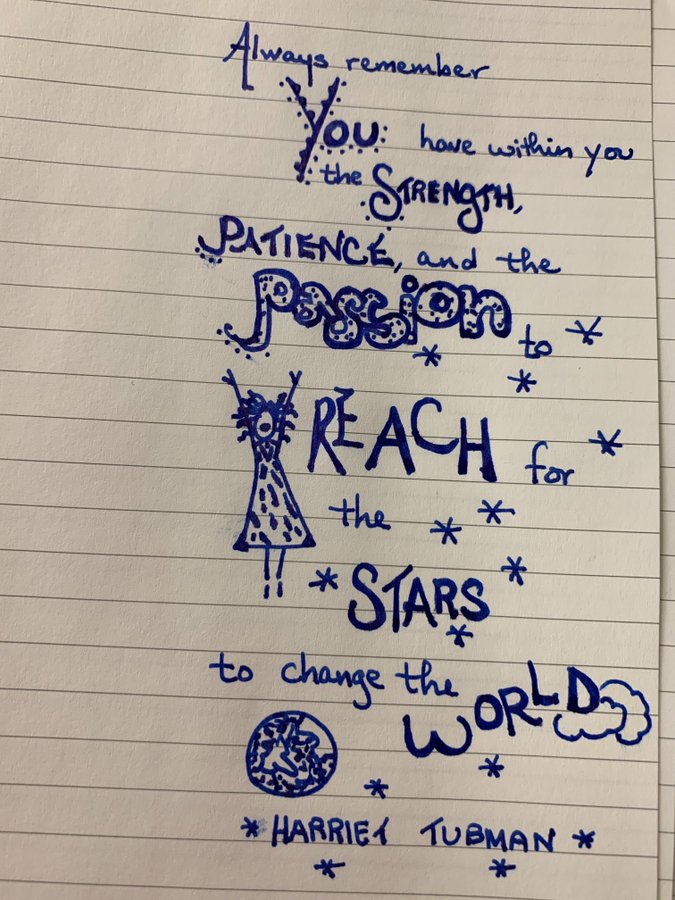 Always remember
YOU: have within you
the STRENGTH,
PATIENCE, and the
Passion to
REACH for
the
STARS
to change the
WORLD
HARRIET TUBMAN